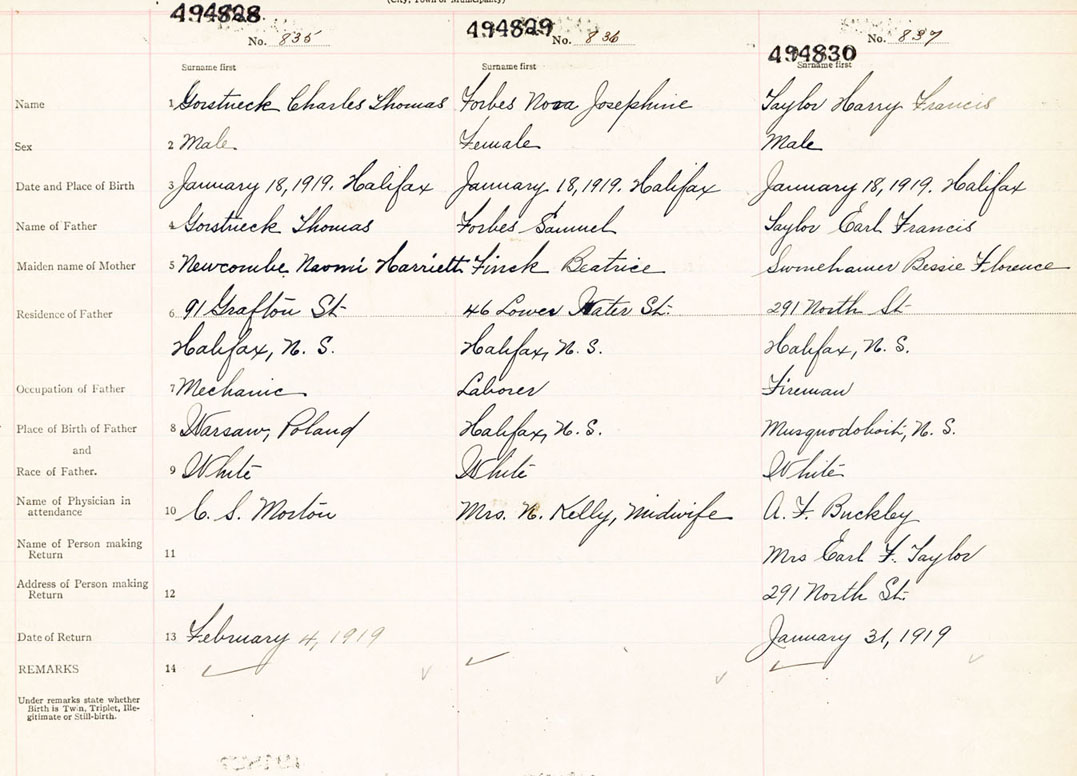 (City, Town or Municipality)
494828 494829 494830
No. 835 No. 836 No. 837
Surname first Surname first Surname first
Name 1 Gorstueck Charles Thomas Forbes Nova Josephine Taylor Harry Francis
Sex 2 Male Female Male
Date and Place of Birth 3 January 18, 1919. Halifax January 18, 1919. Halifax January 18, 1919. Halifax
Name of Father 4 Gorstueck Thomas Forbes Samuel Taylor Earl Francis
Maiden name of Mother 5 Newcombe Naomi Harriett Finck Beatrice Swinehamer Bessie Florence
Residence of Father 6 91 Grafton St 46 Lower Water St. 291 North St
Halifax, N. S. Halifax, N. S. Halifax, N. S.
Occupation of Father 7 Mechanic Laborer Fireman
Place of Birth of Father 8 Warsaw, Poland Halifax, N. S. Musquodoboit, N. S.
and
Race of Father. 9 White White White
Name of Physician in attendance 10 C. S. Morton Mrs. N. Kelly, Midwife A. F. Buckley
Name of Person making Return 11 Mrs Earl F. Taylor
Address of Person making Return 12 291 North St.
Date of Return 13 February 4, 1919 January 31, 1919
REMARKS 14
Under remarks state whether
Birth is Twin, Triplet, Ille-
gitimate or Still-birth.